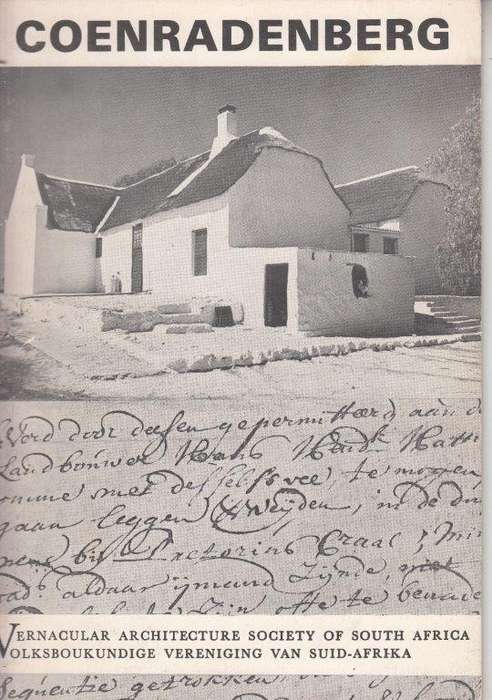 COENRADENBERG
Werd door desen gepermitteerd aan de
Landbouwer Hans Hendk Hatt
omme met desselfs vee, te mogen
gaan leggen & Weyden, in de
bij Pretorius Craal; mi
aldaar ijmand Zijnde, niet
Zijn ofte te
VERNACULAR ARCHITECTURE SOCIETY OF SOUTH AFRICA
VOLKSBOUKUNDIGE VERENIGING VAN SUID-AFRIKA
getrokken,